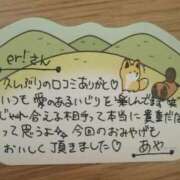 er!さん
久しぶりの口コミありがと♡
いつも愛のあるいじりを楽しんでます笑
じゃれ合える相手って本当に貴重だな
って思うよね。今回のおみやげも
おいしく頂きました♡
あや